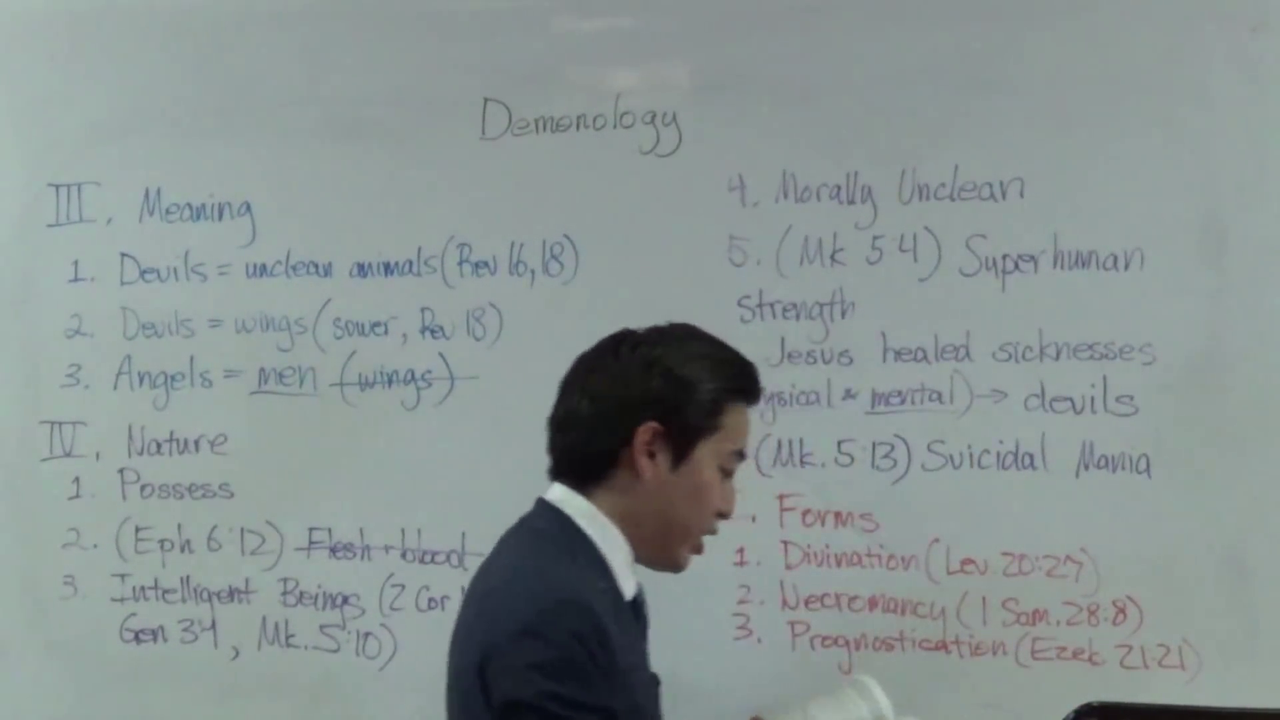 Demonology
III. Meaning
1. Devils = unclean animals (Rev 16, 18)
2. Devils = wings (sower, Rev 18)
3. Angels = men (wings)
IV. Nature
1. Possess
2. (Eph 6:12) Flesh + blood
3. Intelligent Beings (2 Cor
Gen 3:4, Mk. 5:10)
4. Morally Unclean
5. (Mk 5:4) Superhuman
Strength
Jesus healed sicknesses
ysical & mental) → devils
(Mk. 5:13) Suicidal Mania
. Forms
1. Divination (Lev. 20:27)
2. Necromancy (1 Sam. 28:8)
3. Prognostication (Ezek 21:21)